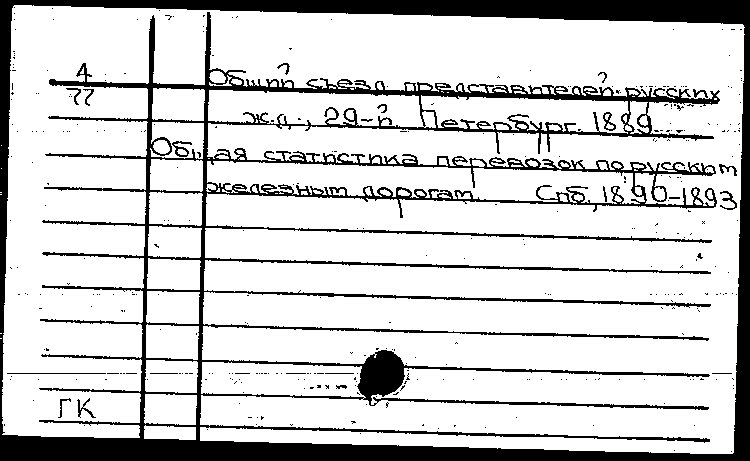 4
77
Общий съезд представителей русских
ж.д., 29-й. Петербург. 1889
Общая статистика перевозок по русским
железным дорогам. Спб., 1890-1893
ГК